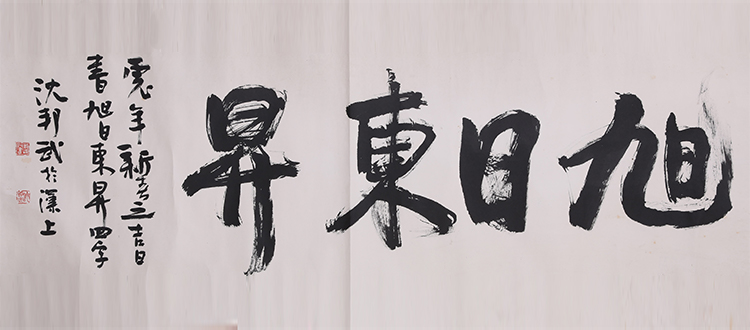 旭日東昇
虎年新春之吉日
書旭日東昇四字
沈邦武於濠上